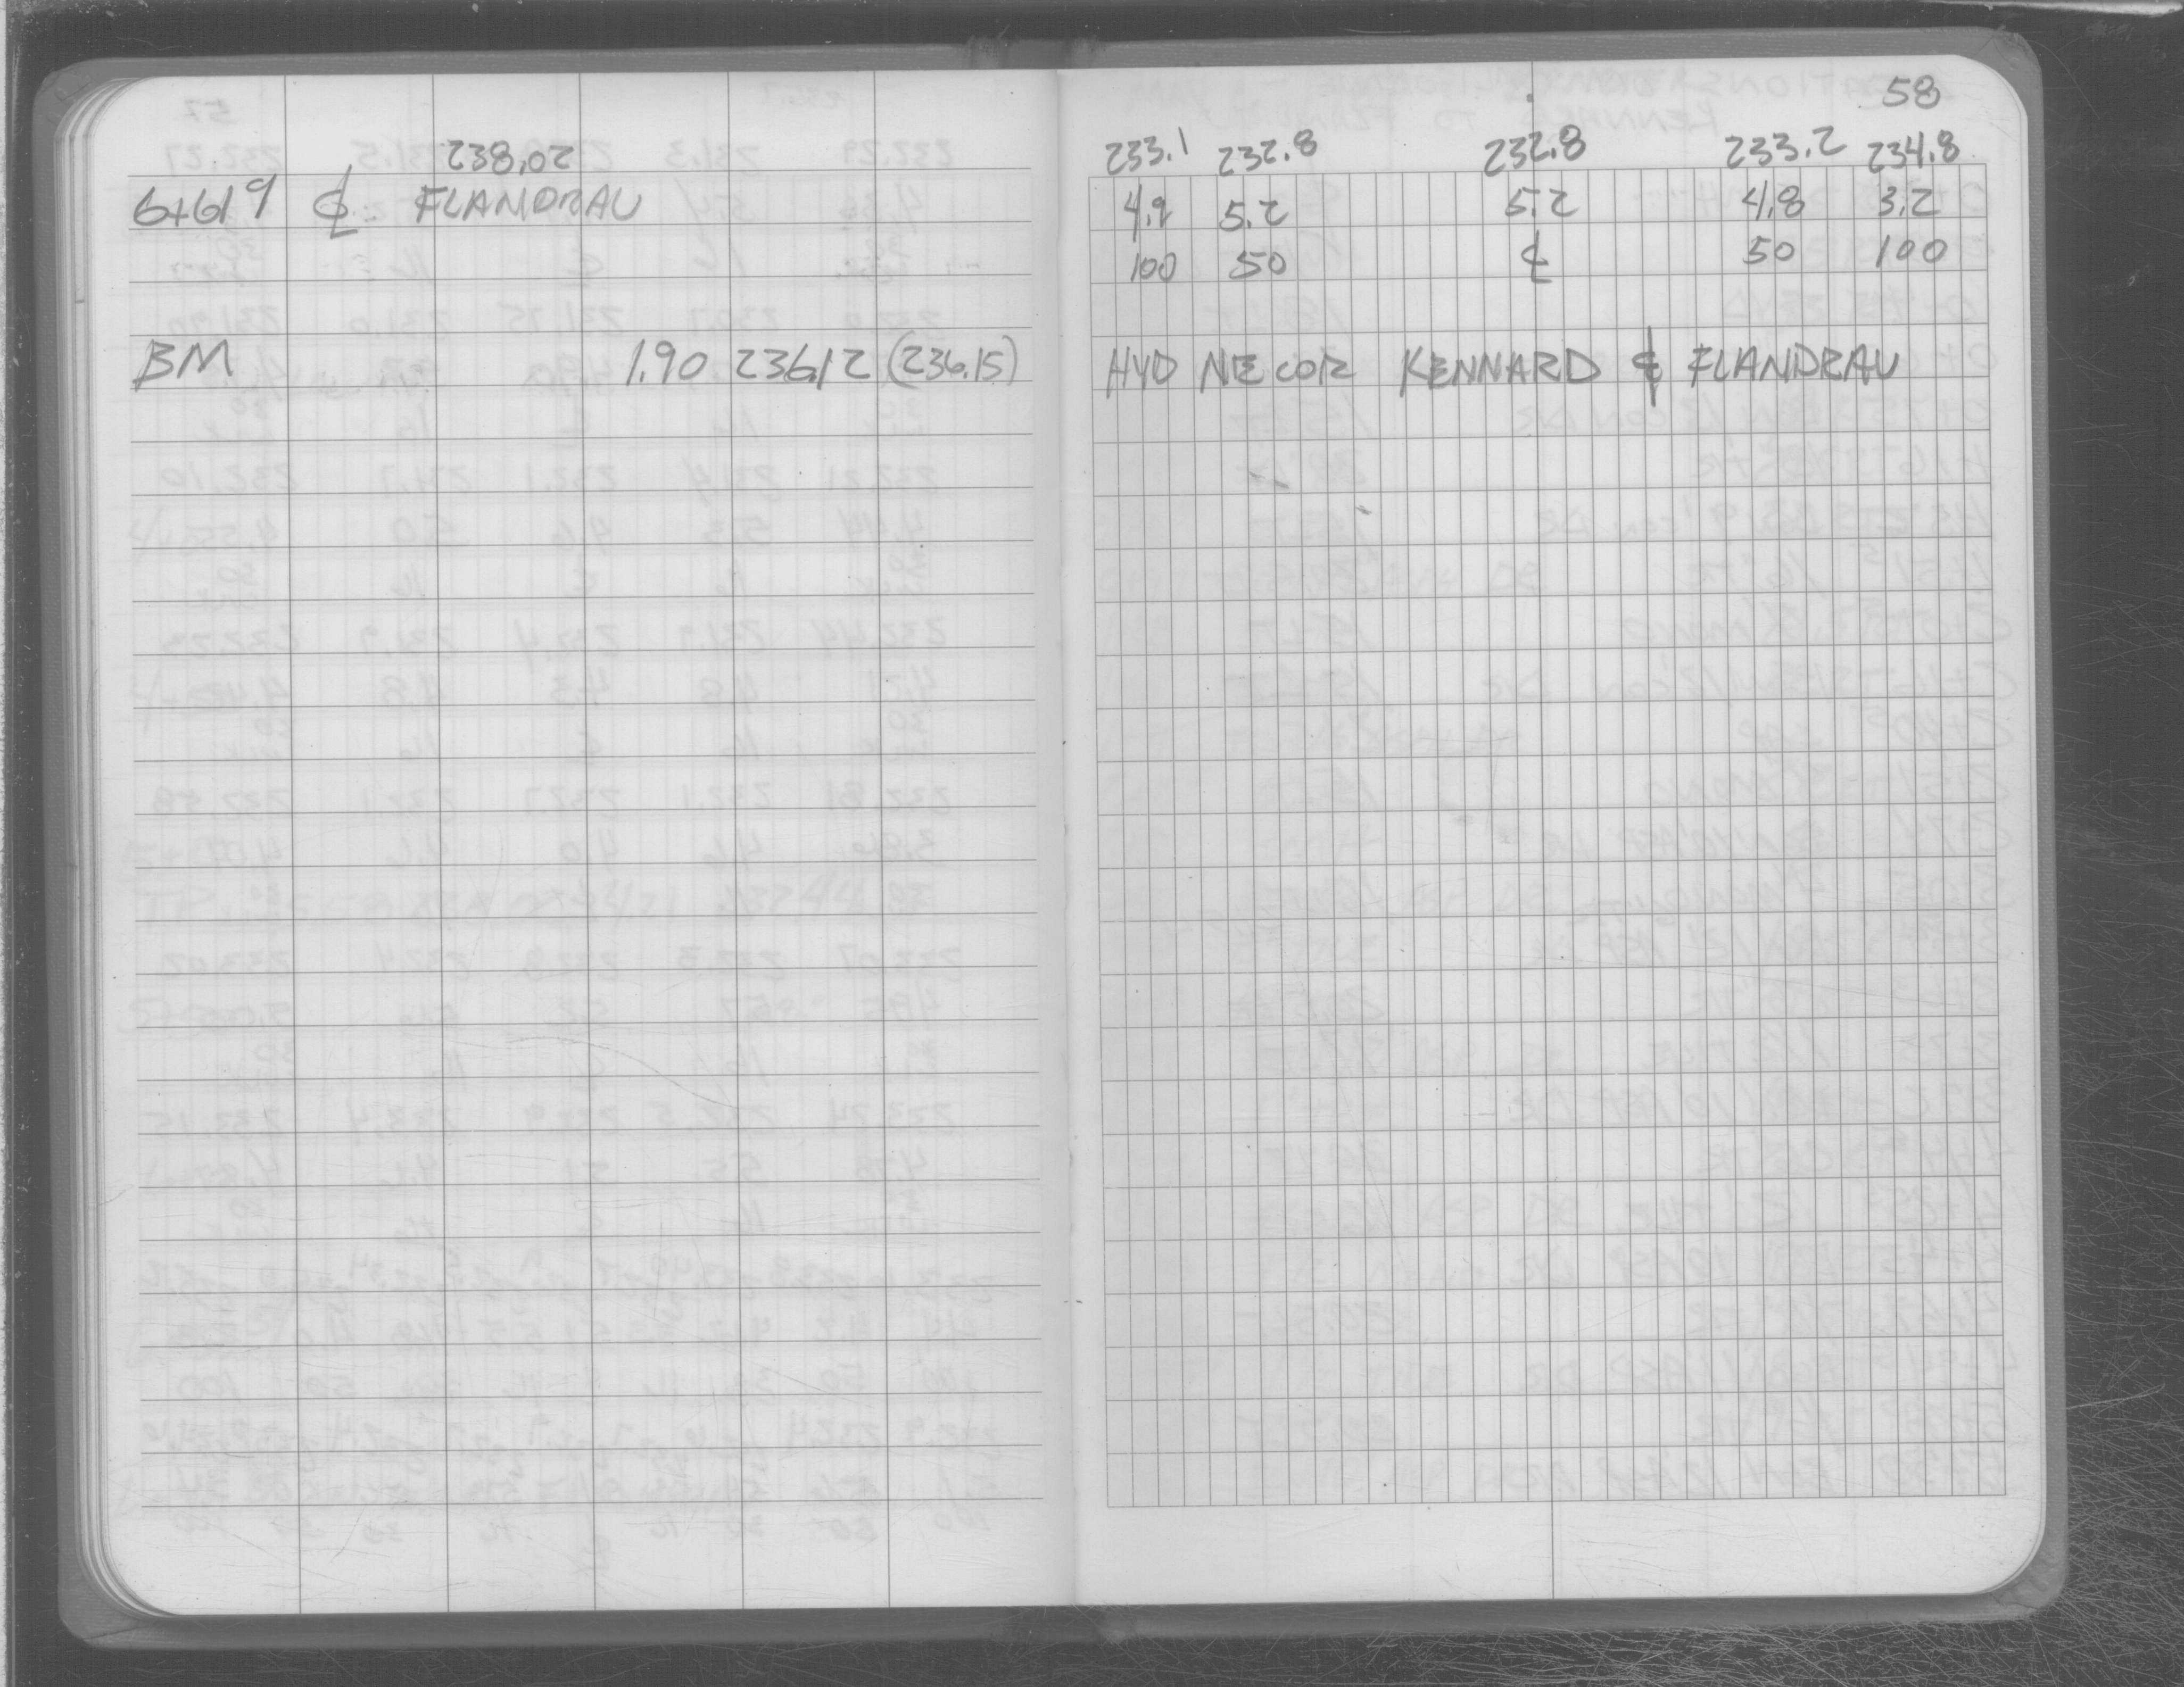 58
238.02
6+61.9 ℄ FLANDRAU
BM 1.90 236.12 (236.15)
233.1 232.8 232.8 233.2 234.8
4.9 5.2 5.2 4.8 3.2
100 50 ℄ 50 100
HYD NE COR KENNARD & FLANDRAU